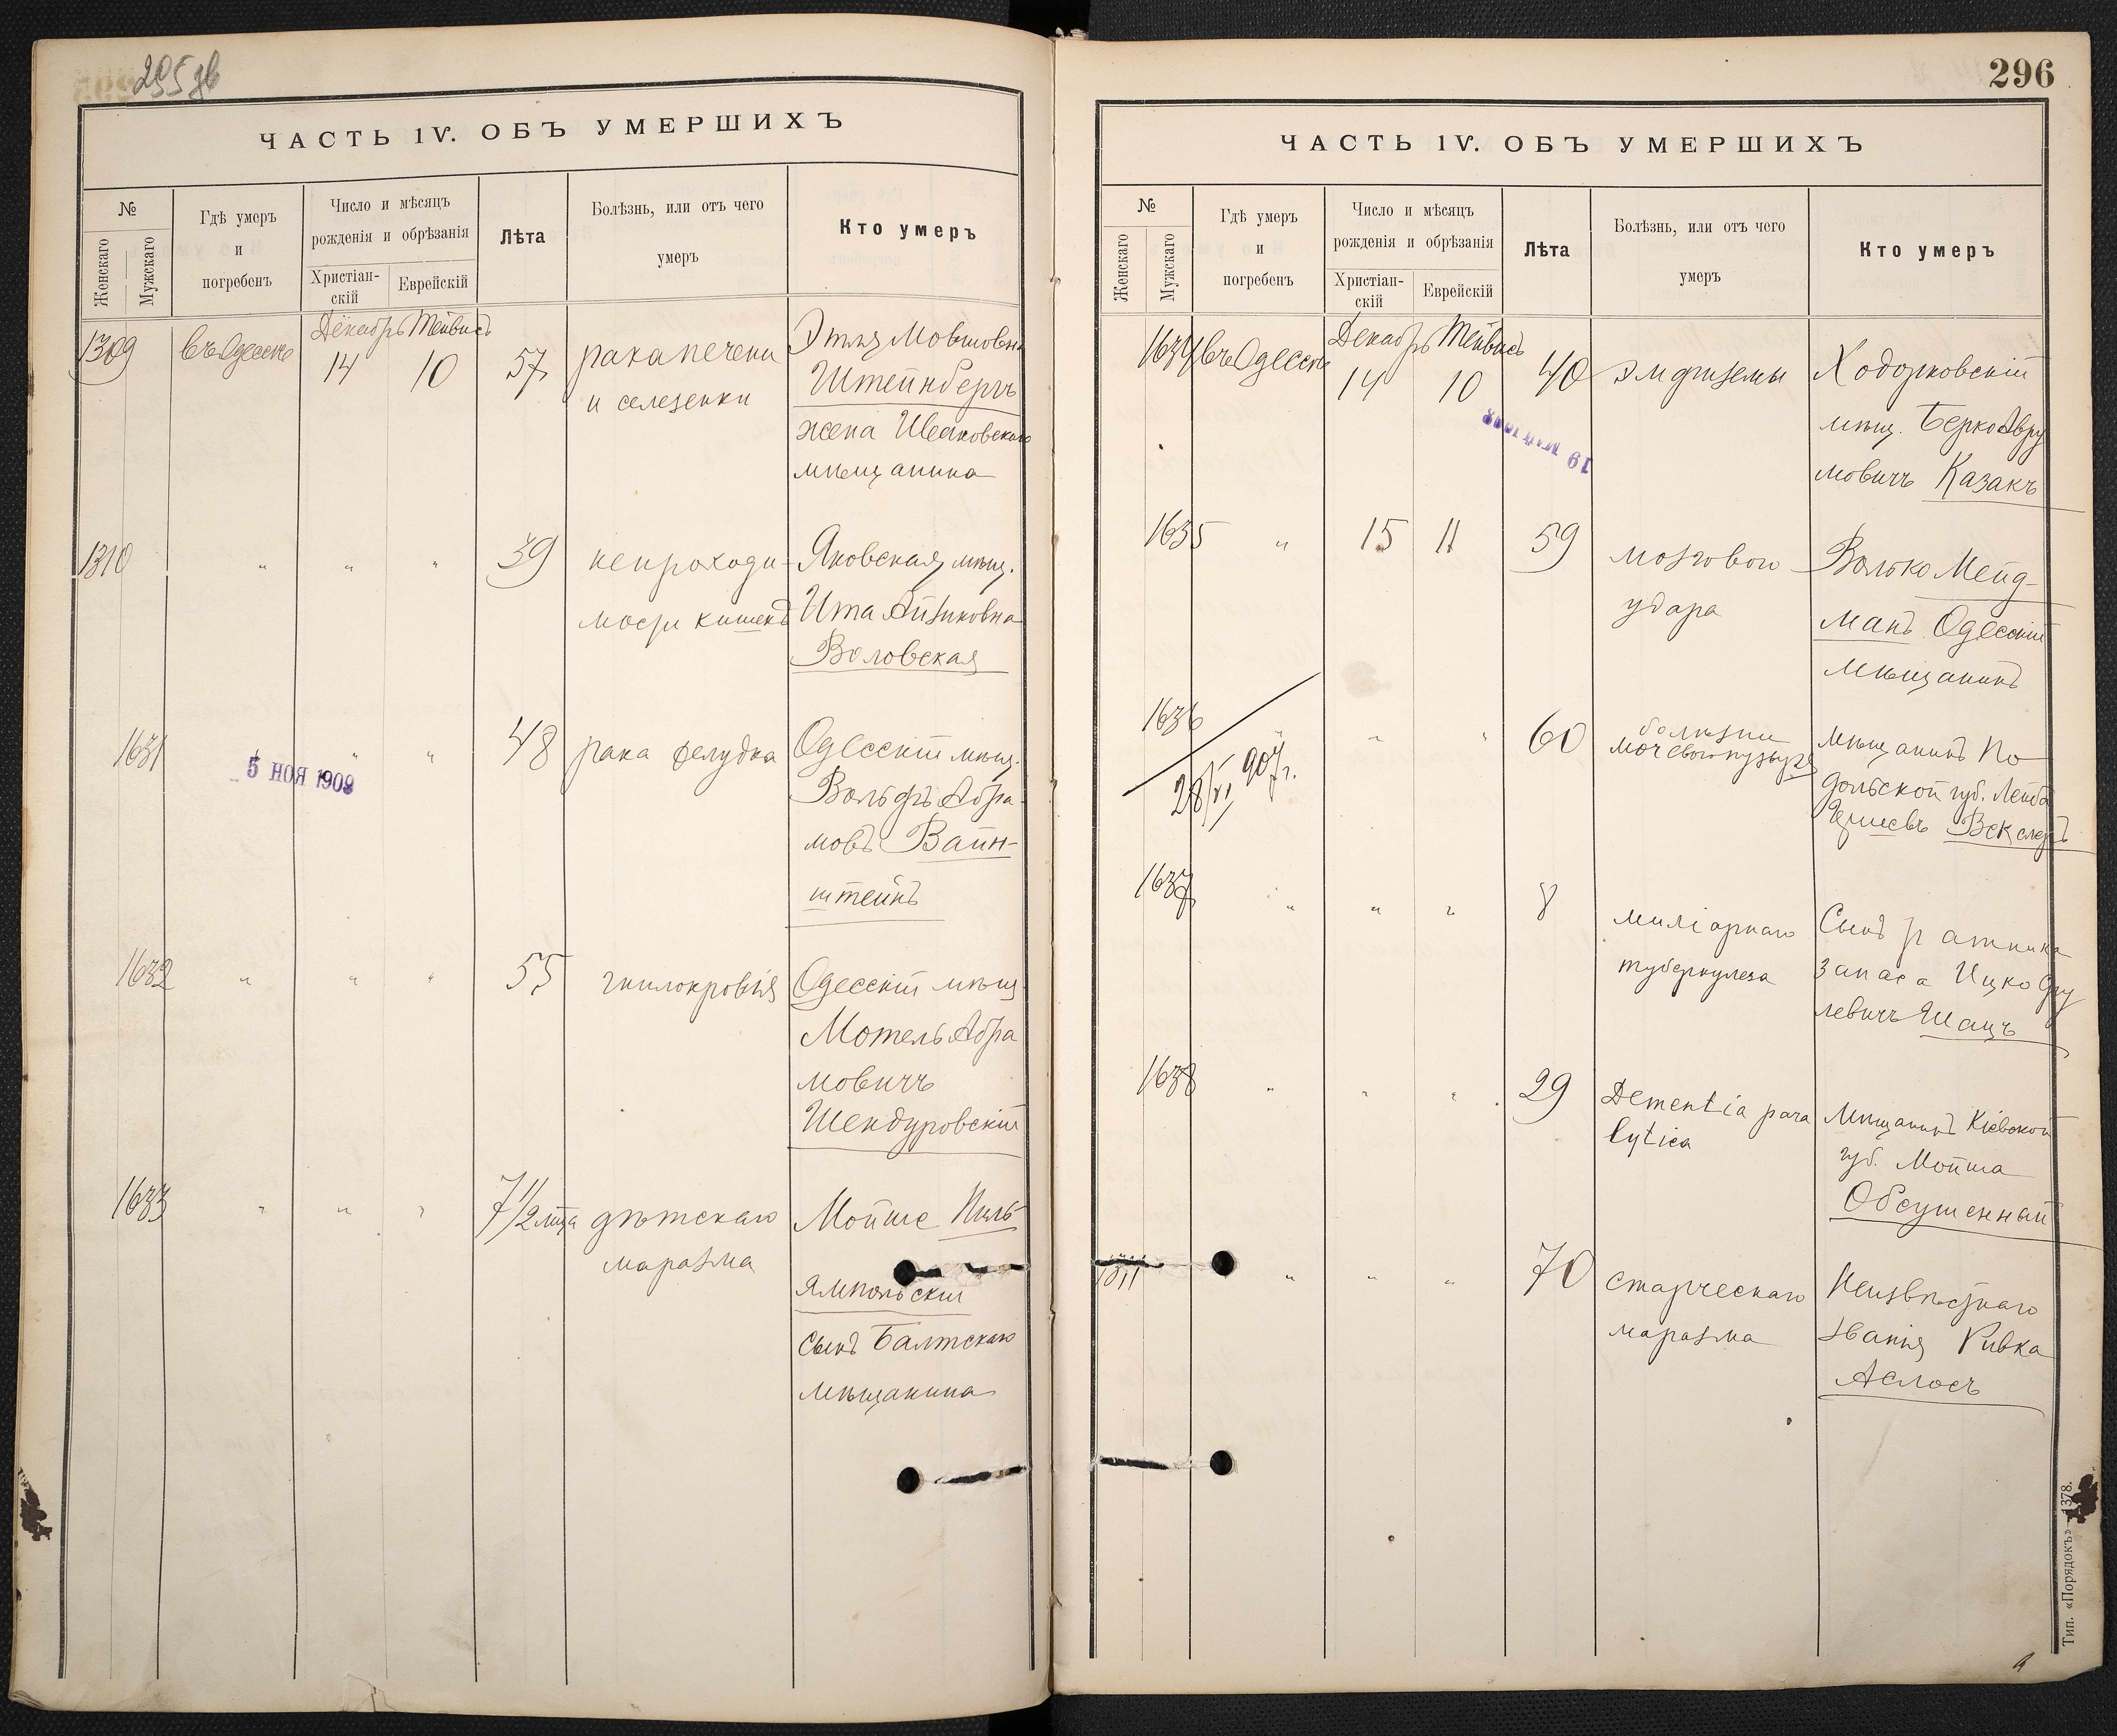 295 об
ЧАСТЬ IV. ОБЪ УМЕРШИХЪ
№
Женскаго
Мужскаго
Гдѣ умеръ
и
погребенъ
Число и мѣсяцъ
рожденія и обрѣзанія
Христіан-
скій
Еврейскій
Лѣта
Болѣзнь, или отъ чего
умеръ
Кто умеръ
1309
въ Одессѣ
Декабрь
14
Тейвисъ
10
57
рака печени
и селезенки
Этля Мовшовна
Штейнбергъ
жена
мѣщанина
1310
"
"
"
39
непроходи-
мости кишекъ
Яновская мѣщ.
Ита Айзиковна
Воловская
1631
5 НОЯ 1908
"
"
48
рака желудка
Одесскій мѣщ.
Вольфъ Абра-
мовъ Вайн-
штейнъ
1632
"
"
"
55
гнилокровія
Одесскій мѣщ.
Мотель Абра
мовичъ
Шендуровскій
1633
"
"
"
7 1/2 м-ца
дѣтскаго
маразма
Мойше Пиль-
Ямпольскій
сынъ Балтскаго
мѣщанина
296
ЧАСТЬ IV. ОБЪ УМЕРШИХЪ
№
Женскаго
Мужскаго
Гдѣ умеръ
и
погребенъ
Число и мѣсяцъ
рожденія и обрѣзанія
Христіан-
скій
Еврейскій
Лѣта
Болѣзнь, или отъ чего
умеръ
Кто умеръ
1634
въ Одессѣ
Декабрь
14
Тейвисъ
10
40
эмфиземы
Ходорковскій
мѣщ. Берко Авру
мовичъ Казакъ
19
1635
"
15
11
59
мозгового
удара
Волько Мейд-
манъ Одесскій
мѣщанинъ
1636
28/XI 907 г.
"
"
"
60
болѣзни
мочевого пузыря
мѣщанинъ По
дольской губ. Лейба
Векслеръ
1637
"
"
"
8
миліарнаго
туберкулеза
Сынъ ратника
запаса Ицко Сру
левичъ Шацъ
1638
"
"
"
29
Dementia para
lytica
Мѣщанинъ Кіевской
губ. Мойша
Обсушенный
1311
"
"
"
70
старческаго
маразма
Неизвѣстнаго
званія Ривка
Аслосъ
Тип. «Порядокъ» 1378.